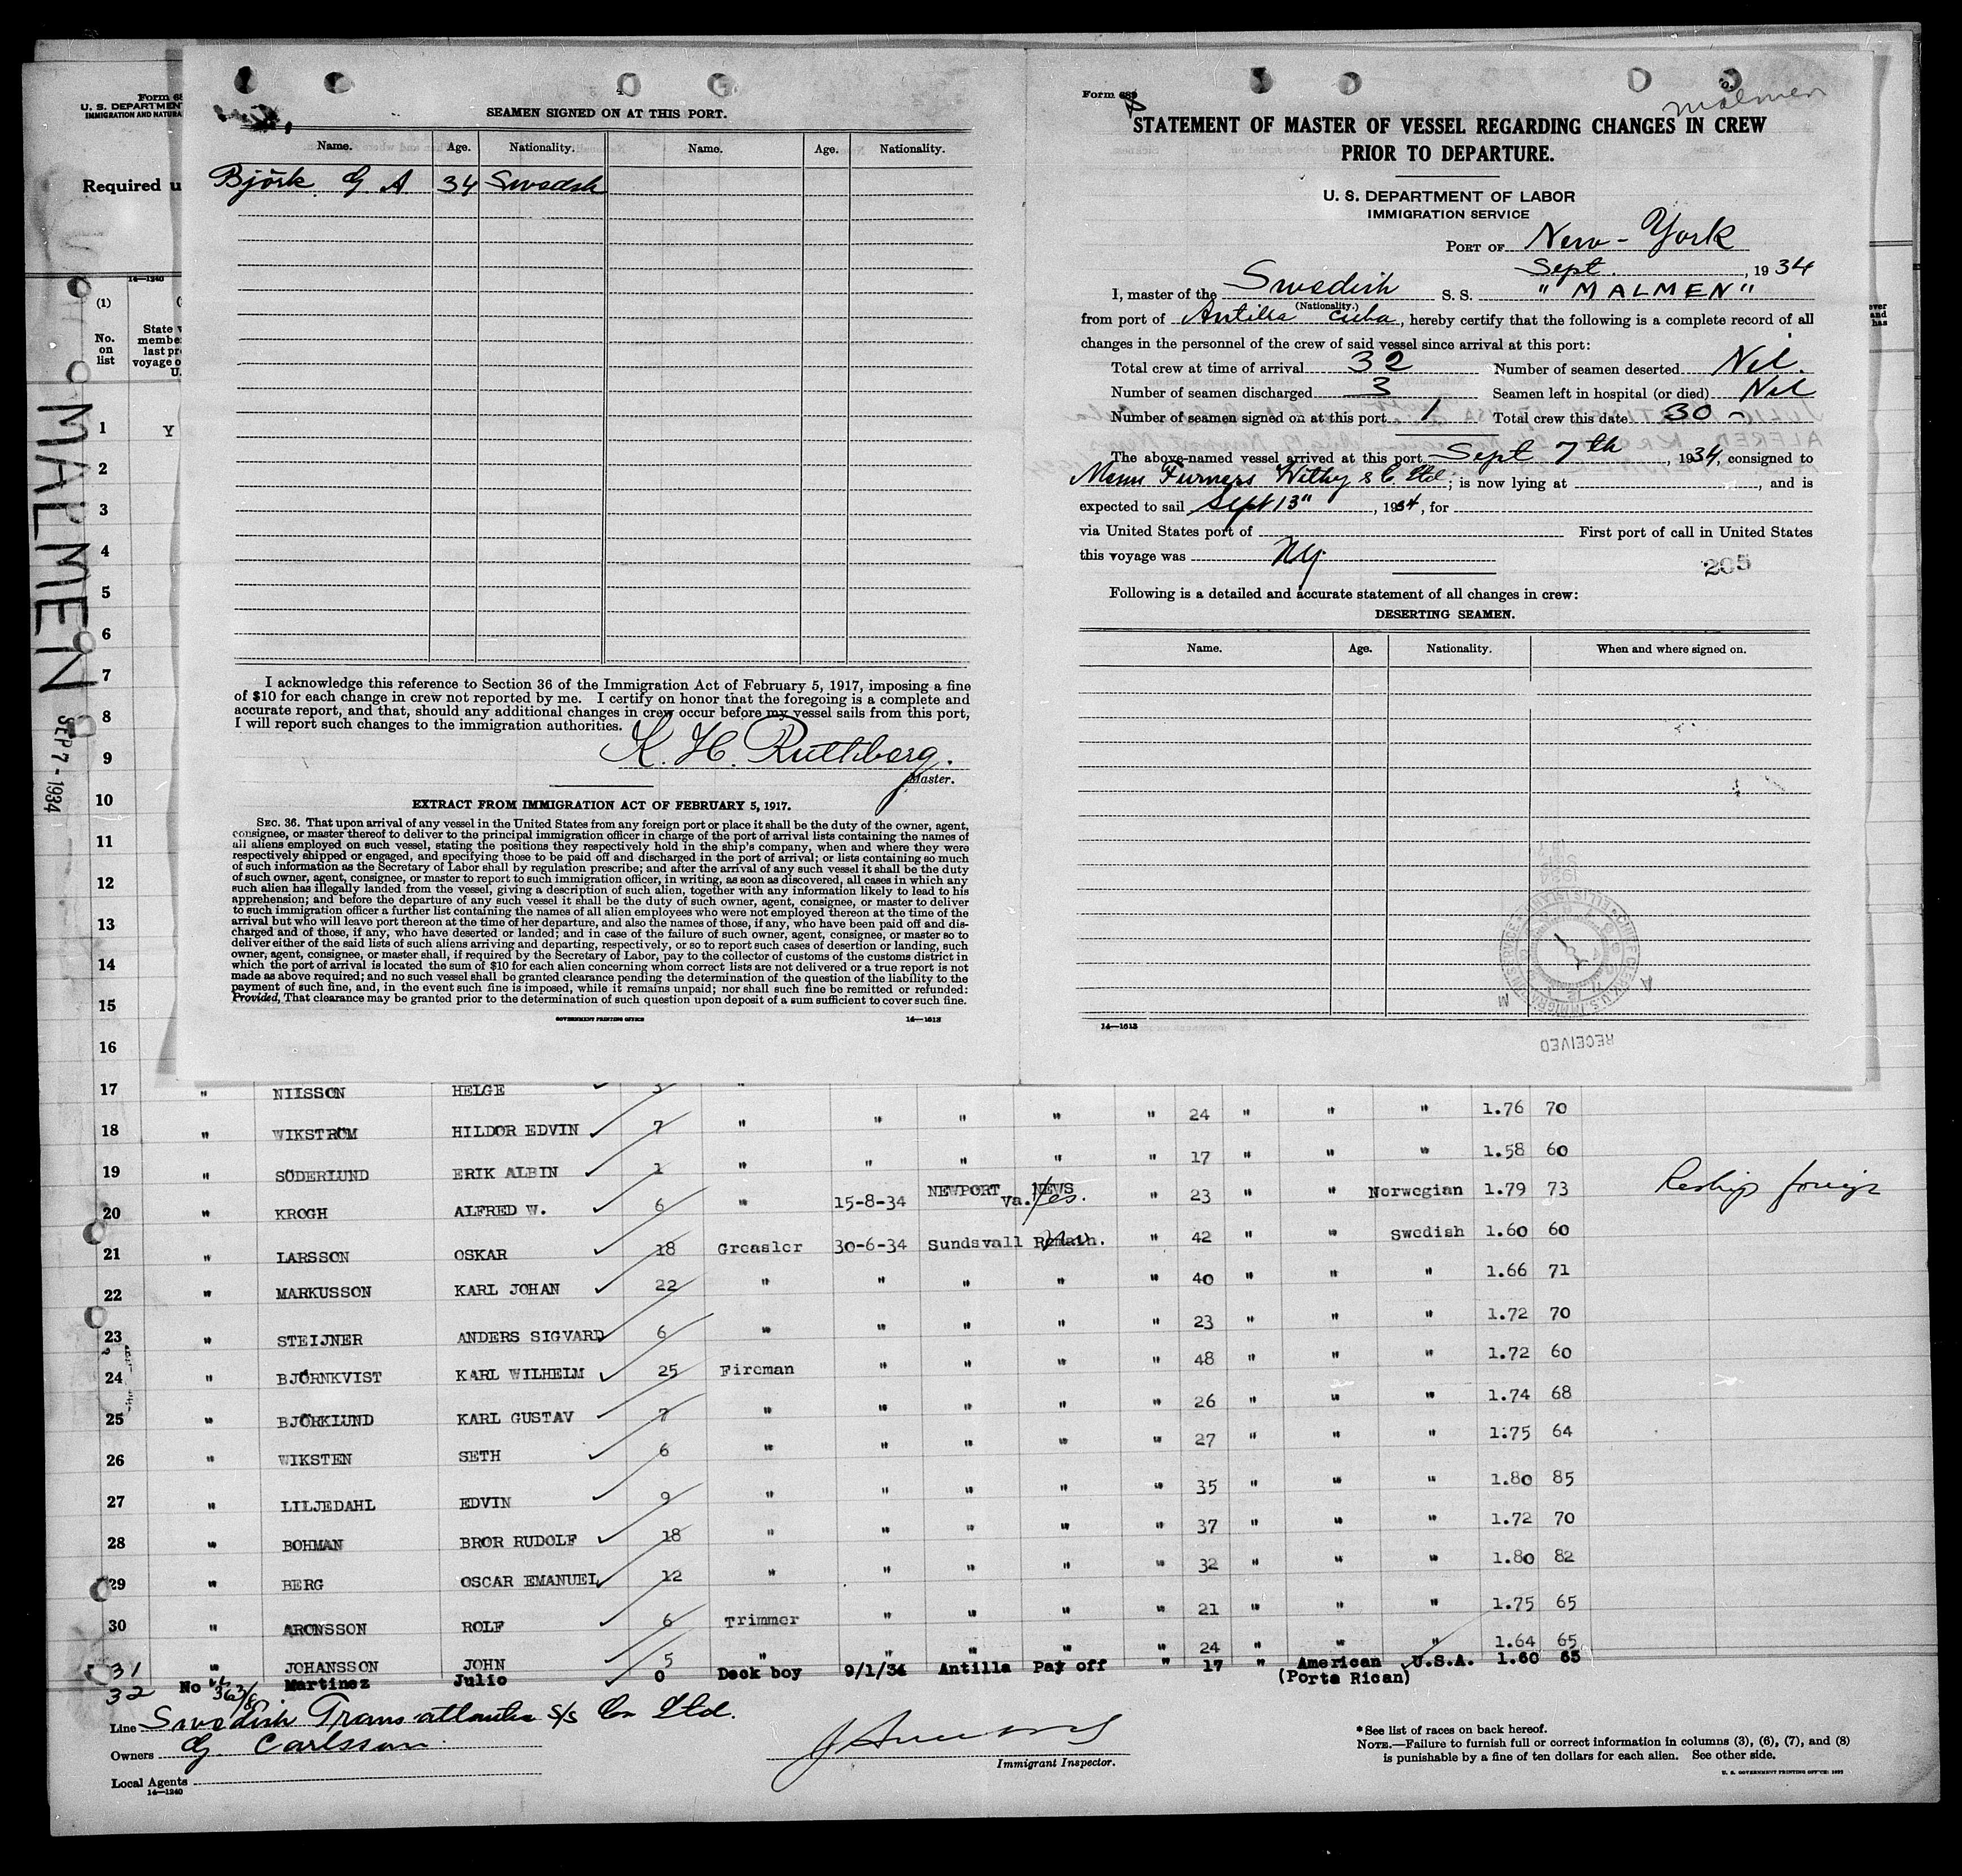 Form 68
U. S. DEPARTMENT
IMMIGRATION AND NATURA
Required u
14—1240
(1)
No. on list
State w
membe
last pr
voyage o
U.
MALMEN
SEP 7 - 1934
1 Y
2
3
4
5
6
7
8
9
10
11
12
13
14
15
16
4
SEAMEN SIGNED ON AT THIS PORT.
Name. Age. Nationality. Name. Age. Nationality.
Björk G A 34 Swedsh
I acknowledge this reference to Section 36 of the Immigration Act of February 5, 1917, imposing a fine
of $10 for each change in crew not reported by me. I certify on honor that the foregoing is a complete and
accurate report, and that, should any additional changes in crew occur before my vessel sails from this port,
I will report such changes to the immigration authorities.
K. H. Ruthberg.
Master.
EXTRACT FROM IMMIGRATION ACT OF FEBRUARY 5, 1917.
SEC. 36. That upon arrival of any vessel in the United States from any foreign port or place it shall be the duty of the owner, agent,
consignee, or master thereof to deliver to the principal immigration officer in charge of the port of arrival lists containing the names of
all aliens employed on such vessel, stating the positions they respectively hold in the ship's company, when and where they were
respectively shipped or engaged, and specifying those to be paid off and discharged in the port of arrival; or lists containing so much
of such information as the Secretary of Labor shall by regulation prescribe; and after the arrival of any such vessel it shall be the duty
of such owner, agent, consignee, or master to report to such immigration officer, in writing, as soon as discovered, all cases in which any
such alien has illegally landed from the vessel, giving a description of such alien, together with any information likely to lead to his
apprehension; and before the departure of any such vessel it shall be the duty of such owner, agent, consignee, or master to deliver
to such immigration officer a further list containing the names of all alien employees who were not employed thereon at the time of the
arrival but who will leave port thereon at the time of her departure, and also the names of those, if any, who have been paid off and dis-
charged and of those, if any, who have deserted or landed; and in case of the failure of such owner, agent, consignee, or master so to
deliver either of the said lists of such aliens arriving and departing, respectively, or so to report such cases of desertion or landing, such
owner, agent, consignee, or master shall, if required by the Secretary of Labor, pay to the collector of customs of the customs district in
which the port of arrival is located the sum of $10 for each alien concerning whom correct lists are not delivered or a true report is not
made as above required; and no such vessel shall be granted clearance pending the determination of the question of the liability to the
payment of such fine, and, in the event such fine is imposed, while it remains unpaid; nor shall such fine be remitted or refunded:
Provided, That clearance may be granted prior to the determination of such question upon deposit of a sum sufficient to cover such fine.
GOVERNMENT PRINTING OFFICE 14—1613
Form 689
malmen
STATEMENT OF MASTER OF VESSEL REGARDING CHANGES IN CREW
PRIOR TO DEPARTURE.
U. S. DEPARTMENT OF LABOR
IMMIGRATION SERVICE
PORT OF New-York
Sept. , 1934
I, master of the Swedish S. S. "MALMEN"
(Nationality.)
from port of Antilla Cuba, hereby certify that the following is a complete record of all
changes in the personnel of the crew of said vessel since arrival at this port:
Total crew at time of arrival 32 Number of seamen deserted Nil.
Number of seamen discharged 3 Seamen left in hospital (or died) Nil
Number of seamen signed on at this port 1 Total crew this date 30
The above-named vessel arrived at this port Sept 7th, 1934, consigned to
Messrs Furness Withy & C Ltd; is now lying at , and is
expected to sail Sept 13", 1934, for
via United States port of First port of call in United States
this voyage was Ny.
205
Following is a detailed and accurate statement of all changes in crew:
DESERTING SEAMEN.
Name. Age. Nationality. When and where signed on.
RECEIVED
14—1613
17 " NILSSON HELGE "
18 " WIKSTRÖM HILDOR EDVIN 7 " " " " " 24 " " " 1.76 70
19 " SÖDERLUND ERIK ALBIN 1 " " " " " 17 " " " 1.58 60
20 " KROGH ALFRED W. 6 " 15-8-34 NEWPORT NEWS Va. Yes. " 23 " " Norwegian 1.79 73 Reship foreign
21 " LARSSON OSKAR 18 Greasler 30-6-34 Sundsvall Remain. " 42 " " Swedish 1.60 60
22 " MARKUSSON KARL JOHAN 22 " " " " " 40 " " " 1.66 71
23 " STEIJNER ANDERS SIGVARD 6 " " " " " 23 " " " 1.72 70
24 " BJÖRNKVIST KARL WILHELM 25 Fireman " " " " 48 " " " 1.72 60
25 " BJÖRKLUND KARL GUSTAV 7 " " " " " 26 " " " 1.74 68
26 " WIKSTEN SETH 6 " " " " " 27 " " " 1.75 64
27 " LILJEDAHL EDVIN 9 " " " " " 35 " " " 1.80 85
28 " BOHMAN BROR RUDOLF 18 " " " " " 37 " " " 1.72 70
29 " BERG OSCAR EMANUEL 12 " " " " " 32 " " " 1.80 82
30 " ARONSSON ROLF 6 Trimmer " " " " 21 " " " 1.75 65
31 " JOHANSSON JOHN 5 " " " " " 24 " " " 1.64 65
32 No Martinez Julio 0 Deck boy 9/1/34 Antilla Pay off " 17 " American (Porto Rican) U.S.A. 1.60 65
Line Swedish Trans atlantic S/S Co Ltd.
Owners G. Carlsson
Local Agents
14—1240
Immigrant Inspector.
*See list of races on back hereof.
NOTE.—Failure to furnish full or correct information in columns (3), (6), (7), and (8)
is punishable by a fine of ten dollars for each alien. See other side.